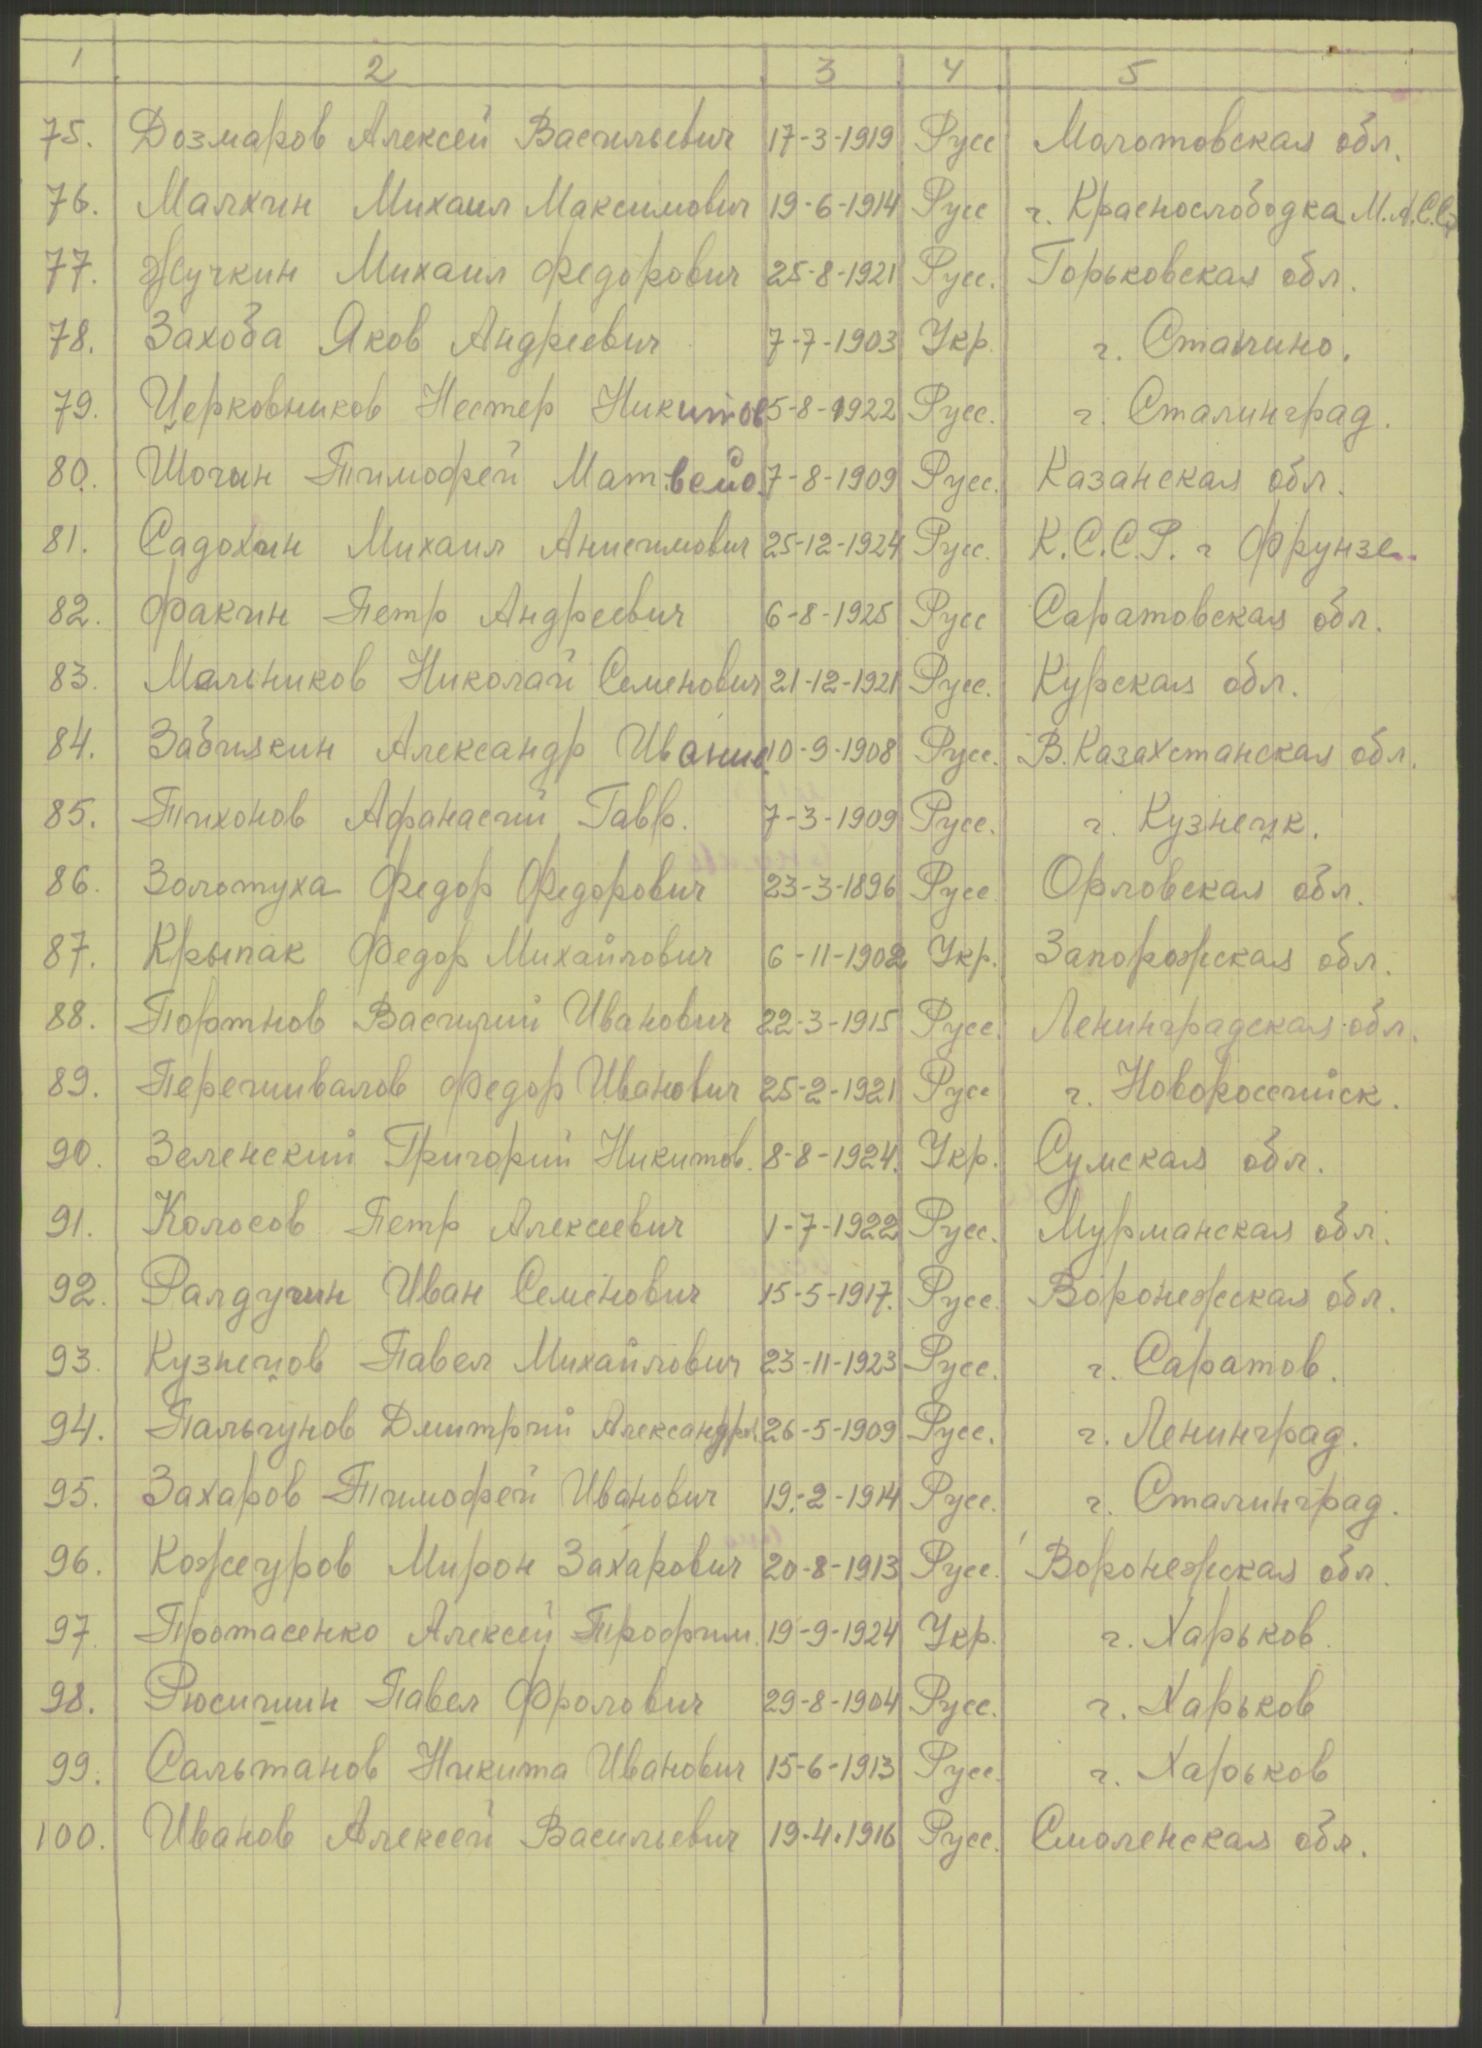 1 2 3 4 5
75. Дозмаров Алексей Васильевич 17-3-1919 Русс Молотовская обл.
76. Малхин Михаил Максимович 19-6-1914 Русс г. Краснослободка М.А.С.С.
77. Жучкин Михаил Федорович 25-8-1921 Русс. Горьковская обл.
78. Захоба Яков Андреевич 7-7-1903 Укр. г. Сталино.
79. Церковников Нестер Никитов 5-8-1922 Русс. г. Сталинград.
80. Шочин Тимофей Матвейо. 7-8-1909 Русс. Казанская обл.
81. Садохин Михаил Анисимович 25-12-1924 Русс. К.С.С.Р. г Фрунзе.
82. Факин Петр Андреевич 6-8-1925 Русс Саратовская обл.
83. Мельников Николай Семенович 21-12-1921 Русс. Курская обл.
84. Забиякин Александр Ивание. 10-9-1908 Русс. В.Казахстанская обл.
85. Тихонов Афанасий Гавр. 7-3-1909 Русс. г. Кузнецк.
86. Золотуха Федор Федорович 23-3-1896 Русс Орловская обл.
87. Крыпак Федор Михайлович 6-11-1902 Укр. Запорожская обл.
88. Портнов Василий Иванович 22-3-1915 Русс. Ленинградская обл.
89. Перешивалов Федор Иванович 25-2-1921 Русс г. Новороссийск.
90. Зеленский Григорий Никитов. 8-8-1924. Укр. Сумская обл.
91. Колосов Петр Алексеевич 1-7-1922 Русс. Мурманская обл.
92. Ралдугин Иван Семенович 15-5-1917. Русс. Воронежская обл.
93. Кузнецов Павел Михайлович 23-11-1923 Русс. г. Саратов.
94. Пальгунов Дмитрий Александров 26-5-1909 Русс. г. Ленинград.
95. Захаров Тимофей Иванович 19-2-1914 Русс. г. Сталинград.
96. Кожеуров Мирон Захарович 20-8-1913 Русс. Воронежская обл.
97. Протасенко Алексей Трофим. 19-9-1924 Укр. г. Харьков.
98. Павел Фролович 29-8-1904 Русс. г. Харьков
99. Сальтанов Никита Иванович 15-6-1913 Русс. г. Харьков
100. Иванов Алексей Васильевич 19.4.1916 Русс. Смоленская обл.